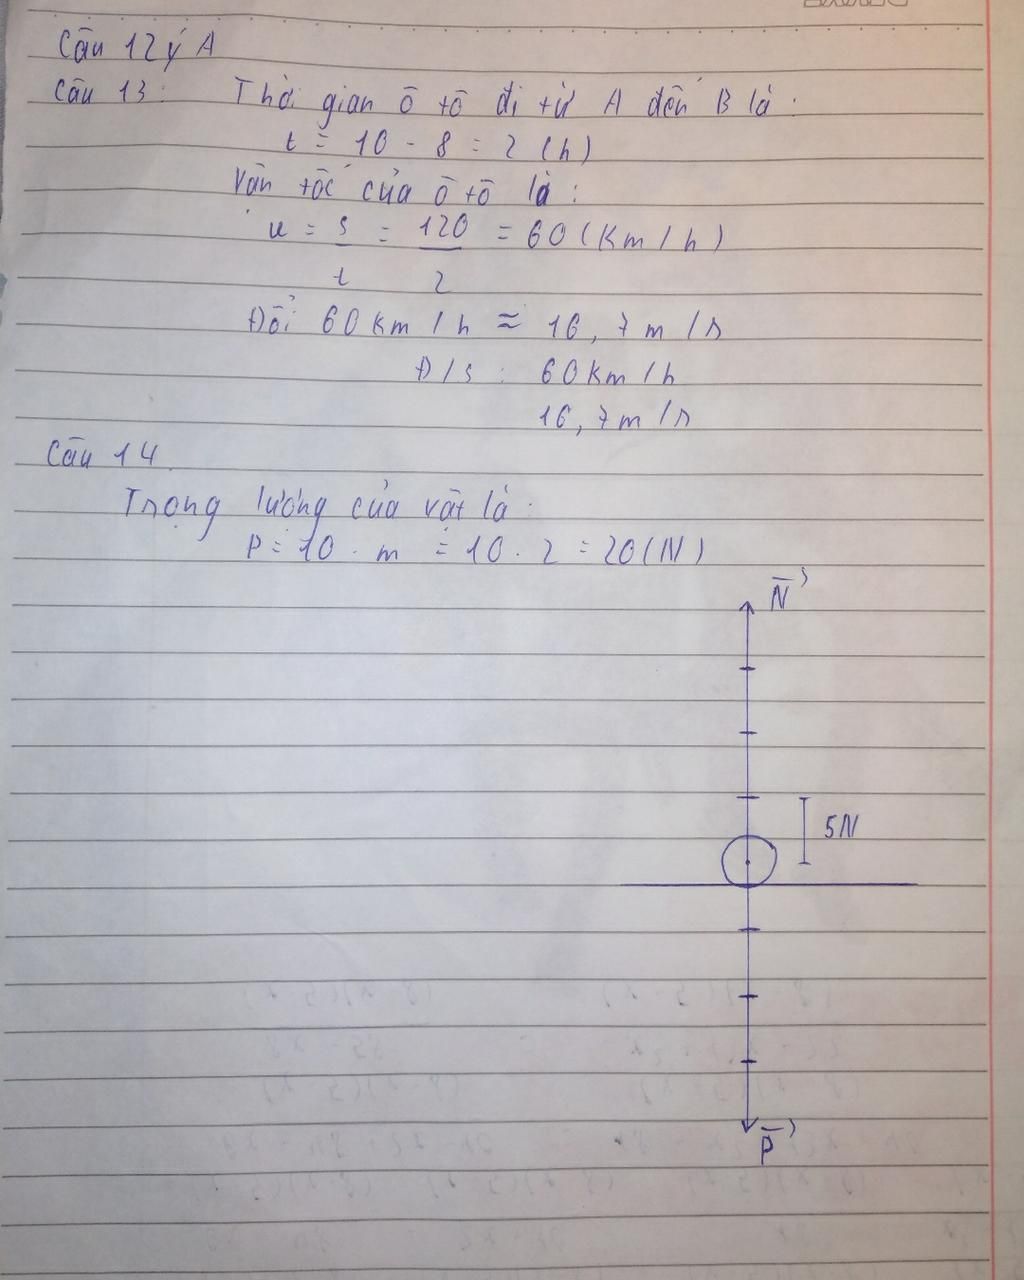 Câu 12 ý A
Câu 13: Thời gian ô tô đi từ A đến B là:
t = 10 - 8 = 2 (h)
Vận tốc của ô tô là:
v = s = 120 = 60 (Km/h)
t 2
Đổi 60 km/h ≈ 16,7 m/s
Đ/s: 60 km/h
16,7 m/s
Câu 14
Trọng lượng của vật là:
P = 10 . m = 10 . 2 = 20 (N)
N
5N
P